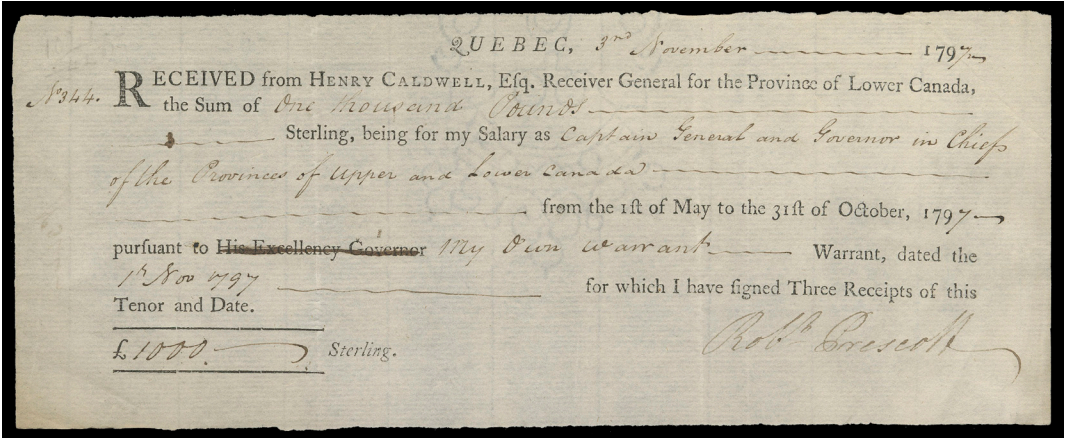 QUEBEC, 3rd November 1797
No 344. RECEIVED from HENRY CALDWELL, Eſq. Receiver General for the Province of Lower Canada,
the Sum of One thousand Pounds
Sterling, being for my Salary as Captain General and Governor in Chief
of the Provinces of Upper and Lower Canada
from the 1ſt of May to the 31ſt of October, 1797
pursuant to His Excellency Governor My Own Warrant Warrant, dated the
1st Nov 1797 for which I have ſigned Three Receipts of this
Tenor and Date.
£1000. Sterling.
Robt Prescott